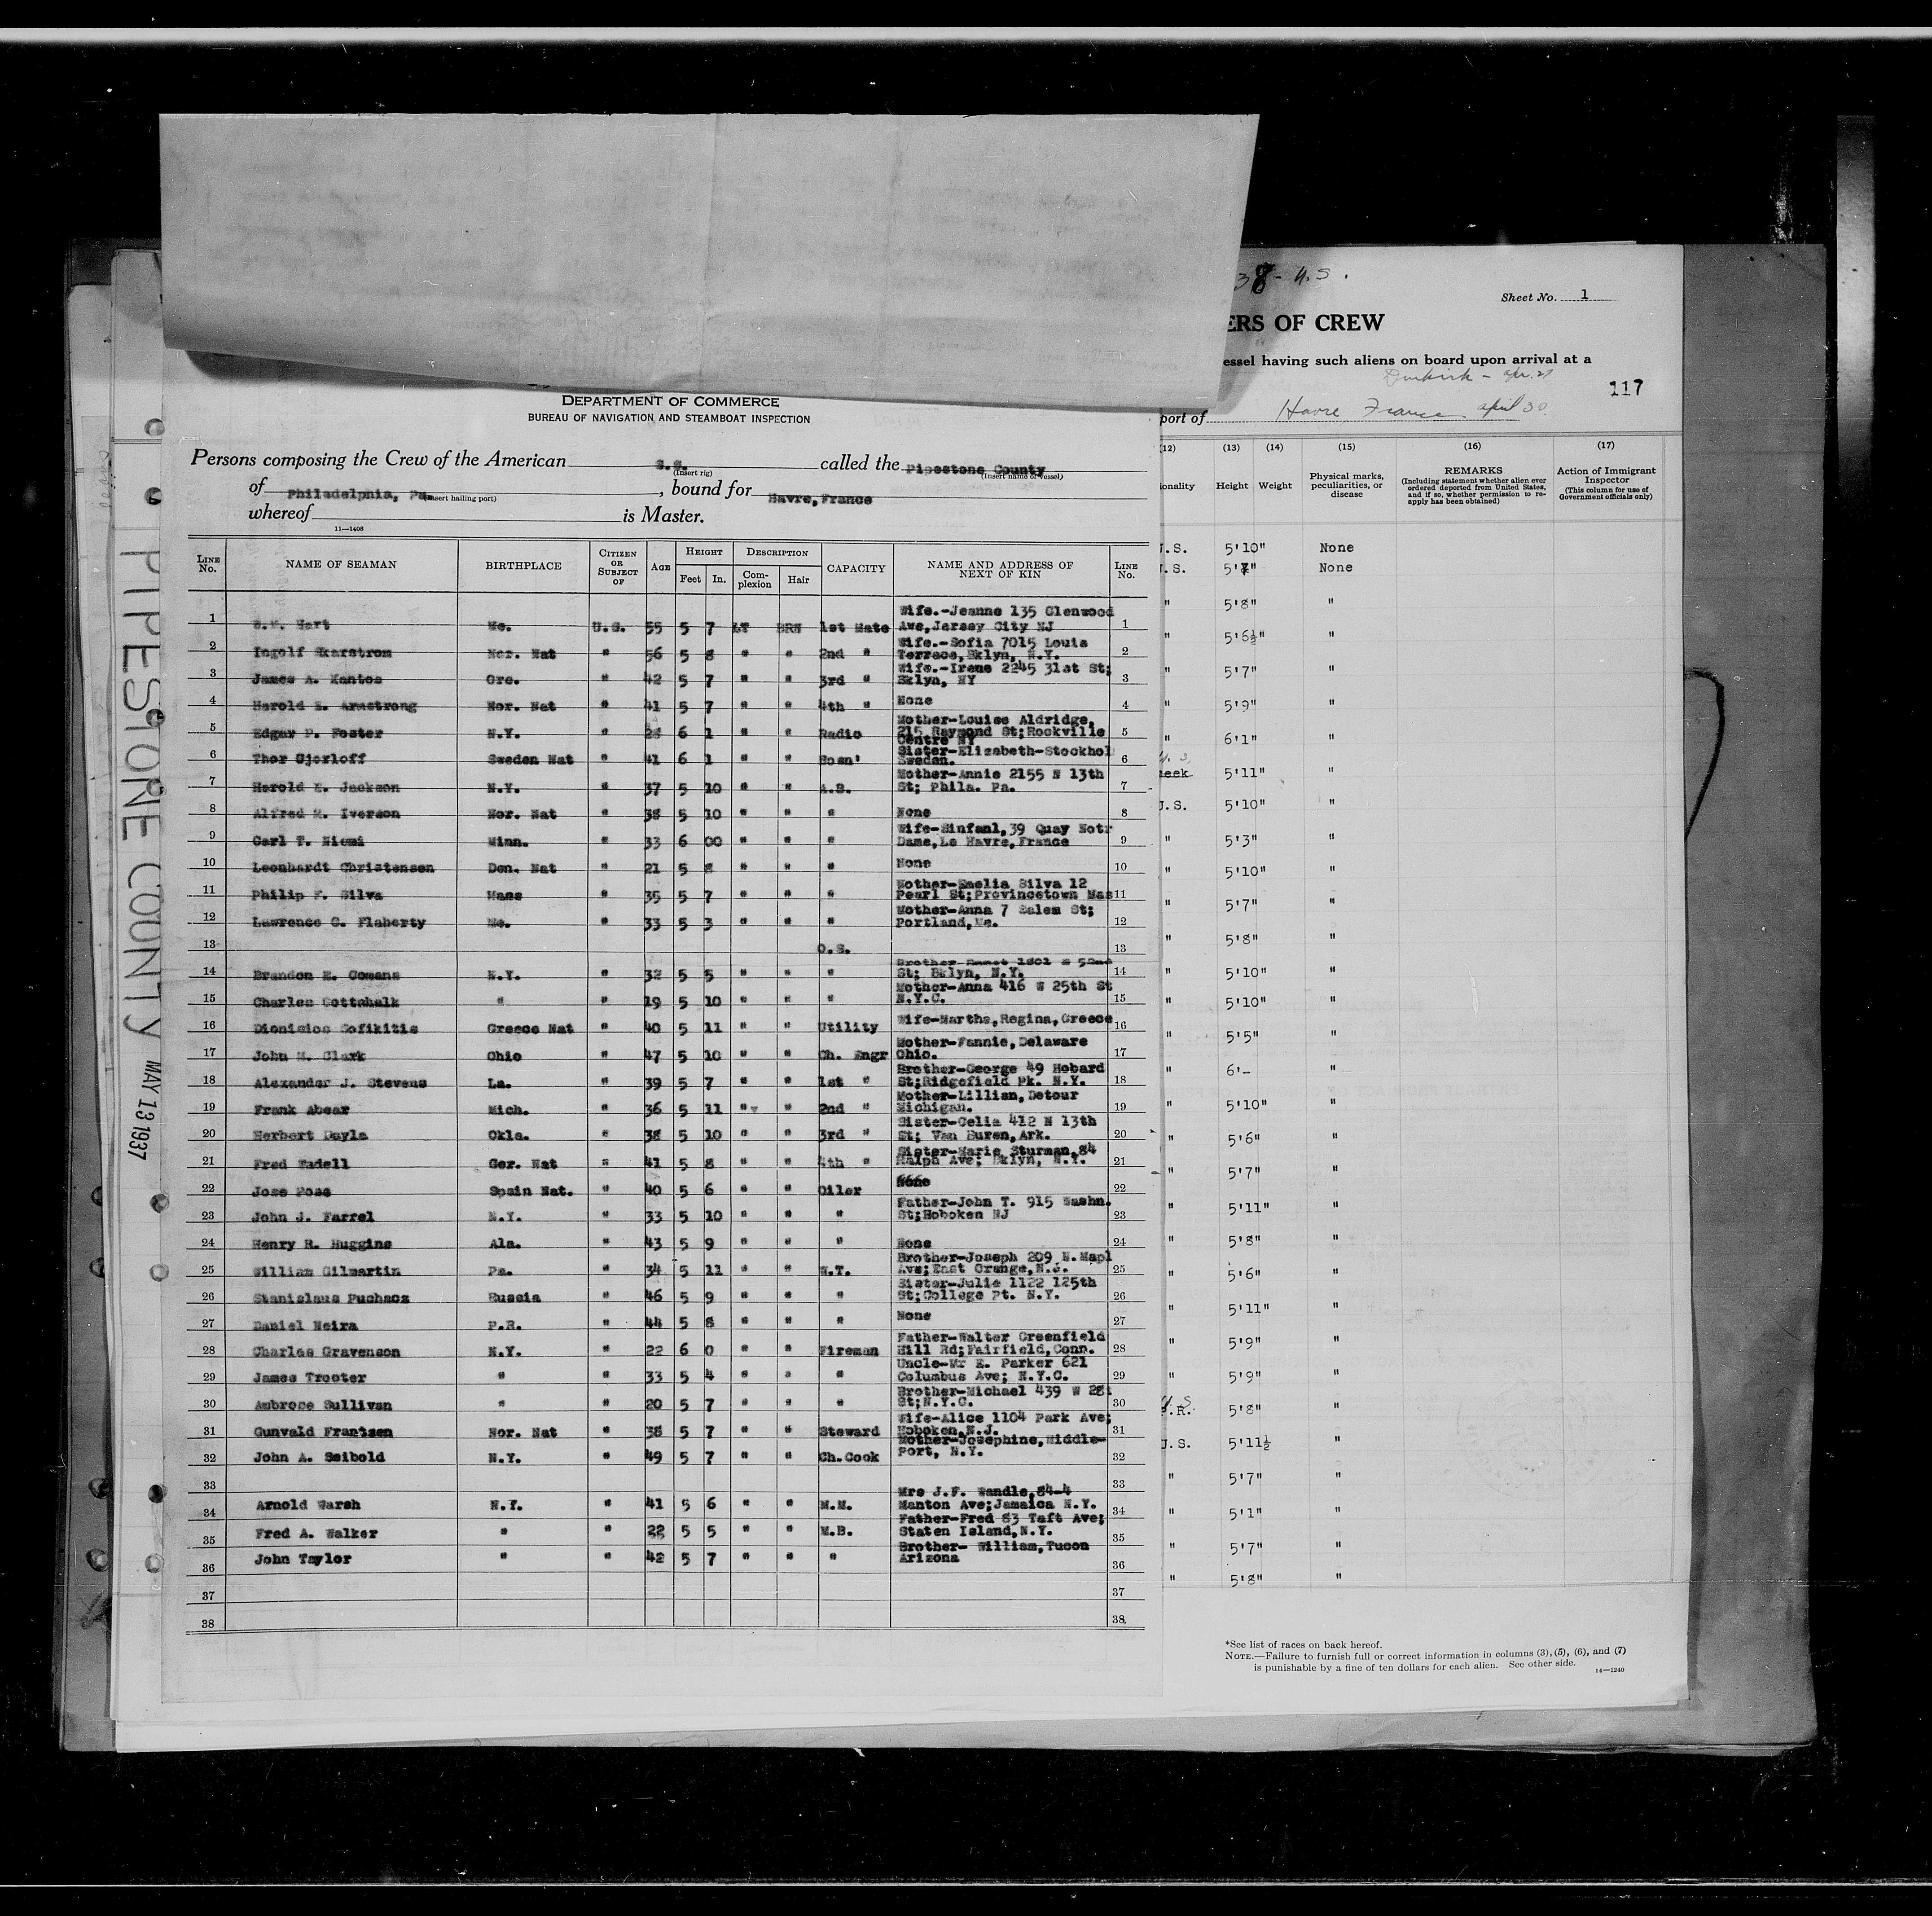 38 - U.S.
Sheet No. 1
ERS OF CREW
essel having such aliens on board upon arrival at a
Dunkirk - apr. 27
117
port of Havre France april 30
DEPARTMENT OF COMMERCE
BUREAU OF NAVIGATION AND STEAMBOAT INSPECTION
Persons composing the Crew of the American S.S. called the Pipestone County
(Insert rig) (Insert name of vessel)
of Philadelphia, Pa. , bound for Havre, France
(Insert hailing port)
whereof is Master.
11—1408
LINE No. NAME OF SEAMAN BIRTHPLACE CITIZEN OR SUBJECT OF AGE HEIGHT Feet In. DESCRIPTION Complexion Hair CAPACITY NAME AND ADDRESS OF NEXT OF KIN LINE No.
1 Hart Me. U.S. 55 5 7 LT BRN 1st Mate Wife.-Jeanne 135 Glenwood Ave, Jersey City NJ 1
2 Ingolf Skarstrom Nor. Nat " 56 5 8 " " 2nd " Wife.-Sofia 7015 Louis Terrace, Bklyn, N.Y. 2
3 James A. Kantos Gre. " 42 5 7 " " 3rd " Wife.-Irene 2245 31st St; Bklyn, NY 3
4 Harold E. Armstrong Nor. Nat " 41 5 7 " " 4th " None 4
5 Edgar P. Foster N.Y. " 6 1 " " Radio Mother-Louise Aldridge, 215 Raymond St; Rockville Centre NY 5
6 Thor Gjorloff Sweden Nat " 41 6 1 " " Bosn' Sister-Elizabeth-Stockhol Sweden. 6
7 Harold E. Jackson N.Y. " 37 5 10 " " A.B. Mother-Annie 2155 N 13th St; Phila. Pa. 7
8 Alfred M. Iverson Nor. Nat " 38 5 10 " " " None 8
9 Carl T. Niemi Minn. " 33 6 00 " " " Wife-Sinfanl, 39 Quay Notr Dame, Le Havre, France 9
10 Leonhardt Christensen Den. Nat " 21 5 8 " " " None 10
11 Philip F. Silva Mass " 35 5 7 " " " Mother-Emelia Silva 12 Pearl St; Provincetown Mas 11
12 Lawrence C. Flaherty Me. " 33 5 3 " " " Mother-Anna 7 Salem St; Portland, Me. 12
13 O.S. 13
14 Brandon E. Comans N.Y. " 32 5 5 " " " Brother-Ernest 1801 E 52nd St; Bklyn, N.Y. 14
15 Charles Gottshalk " " 19 5 10 " " " Mother-Anna 416 W 25th St N.Y.C. 15
16 Dionisios Sofikitis Greece Nat " 40 5 11 " " Utility Wife-Martha, Regina, Greece 16
17 John M. Clark Ohio " 47 5 10 " " Ch. Engr Mother-Fannie, Delaware Ohio. 17
18 Alexander J. Stevens La. " 39 5 7 " " 1st " Brother-George 49 Hobard St; Ridgefield Pk. N.Y. 18
19 Frank Abear Mich. " 36 5 11 " " 2nd " Mother-Lillian, Detour Michigan. 19
20 Herbert Dayla Okla. " 38 5 10 " " 3rd " Sister-Celia 412 N 13th St; Van Buren, Ark. 20
21 Fred Tadell Ger. Nat " 41 5 8 " " 4th " Sister-Marie Sturman, 84 Ralph Ave; Bklyn, N.Y. 21
22 Jose Pose Spain Nat. " 40 5 6 " " Oiler None 22
23 John J. Farrel N.Y. " 33 5 10 " " " Father-John T. 915 Washn. St; Hoboken NJ 23
24 Henry R. Huggins Ala. " 43 5 9 " " " None 24
25 William Gilmartin Pa. " 34 5 11 " " W.T. Brother-Joseph 209 N. Mapl Ave; East Orange, N.J. 25
26 Stanislaus Puchacz Russia " 46 5 9 " " " Sister-Julie 1122 125th St; College Pt. N.Y. 26
27 Daniel Neira P.R. " 44 5 8 " " " None 27
28 Charles Gravenson N.Y. " 22 6 0 " " Fireman Father-Walter Greenfield Hill Rd; Fairfield, Conn. 28
29 James Trooter " " 33 5 4 " " " Uncle-Mr E. Parker 621 Columbus Ave; N.Y.C. 29
30 Ambrose Sullivan " " 20 5 7 " " " Brother-Michael 439 W 28t St; N.Y.C. 30
31 Gunvald Frantsen Nor. Nat " 38 5 7 " " Steward Wife-Alice 1104 Park Ave; Hoboken, N.J. 31
32 John A. Seibold N.Y. " 49 5 7 " " Ch. Cook Mother-Josephine, Middle-Port, N.Y. 32
33 33
34 Arnold Warsh N.Y. " 41 5 6 " " M.M. Mrs J.F. Wandle, 84-4 Manton Ave; Jamaica N.Y. 34
35 Fred A. Walker " " 22 5 5 " " M.B. Father-Fred 83 Taft Ave; Staten Island, N.Y. 35
36 John Taylor " " 42 5 7 " " " Brother- William, Tucon Arizona 36
37 37
38 38
(12) (13) (14) (15) (16) (17)
ionality Height Weight Physical marks, peculiarities, or disease REMARKS (Including statement whether alien ever ordered deported from United States, and if so, whether permission to re-apply has been obtained) Action of Immigrant Inspector (This column for use of Government officials only)
U.S. 5'10" None
U.S. 5'7" None
" 5'8" "
" 5'6½" "
" 5'7" "
" 5'9" "
" 6'1" "
eek 5'11" "
U.S. 5'10" "
" 5'3" "
" 5'10" "
" 5'7" "
" 5'8" "
" 5'10" "
" 5'10" "
" 5'5" "
" 6'- "
" 5'10" "
" 5'6" "
" 5'7" "
" 5'11" "
" 5'8" "
" 5'6" "
" 5'11" "
" 5'9" "
" 5'9" "
5'8" "
U.S. 5'11½ "
" 5'7" "
" 5'1" "
" 5'7" "
" 5'8" "
*See list of races on back hereof.
NOTE.—Failure to furnish full or correct information in columns (3), (5), (6), and (7)
is punishable by a fine of ten dollars for each alien. See other side.
14—1240
PIPESTONE COUNTY MAY 13 1937